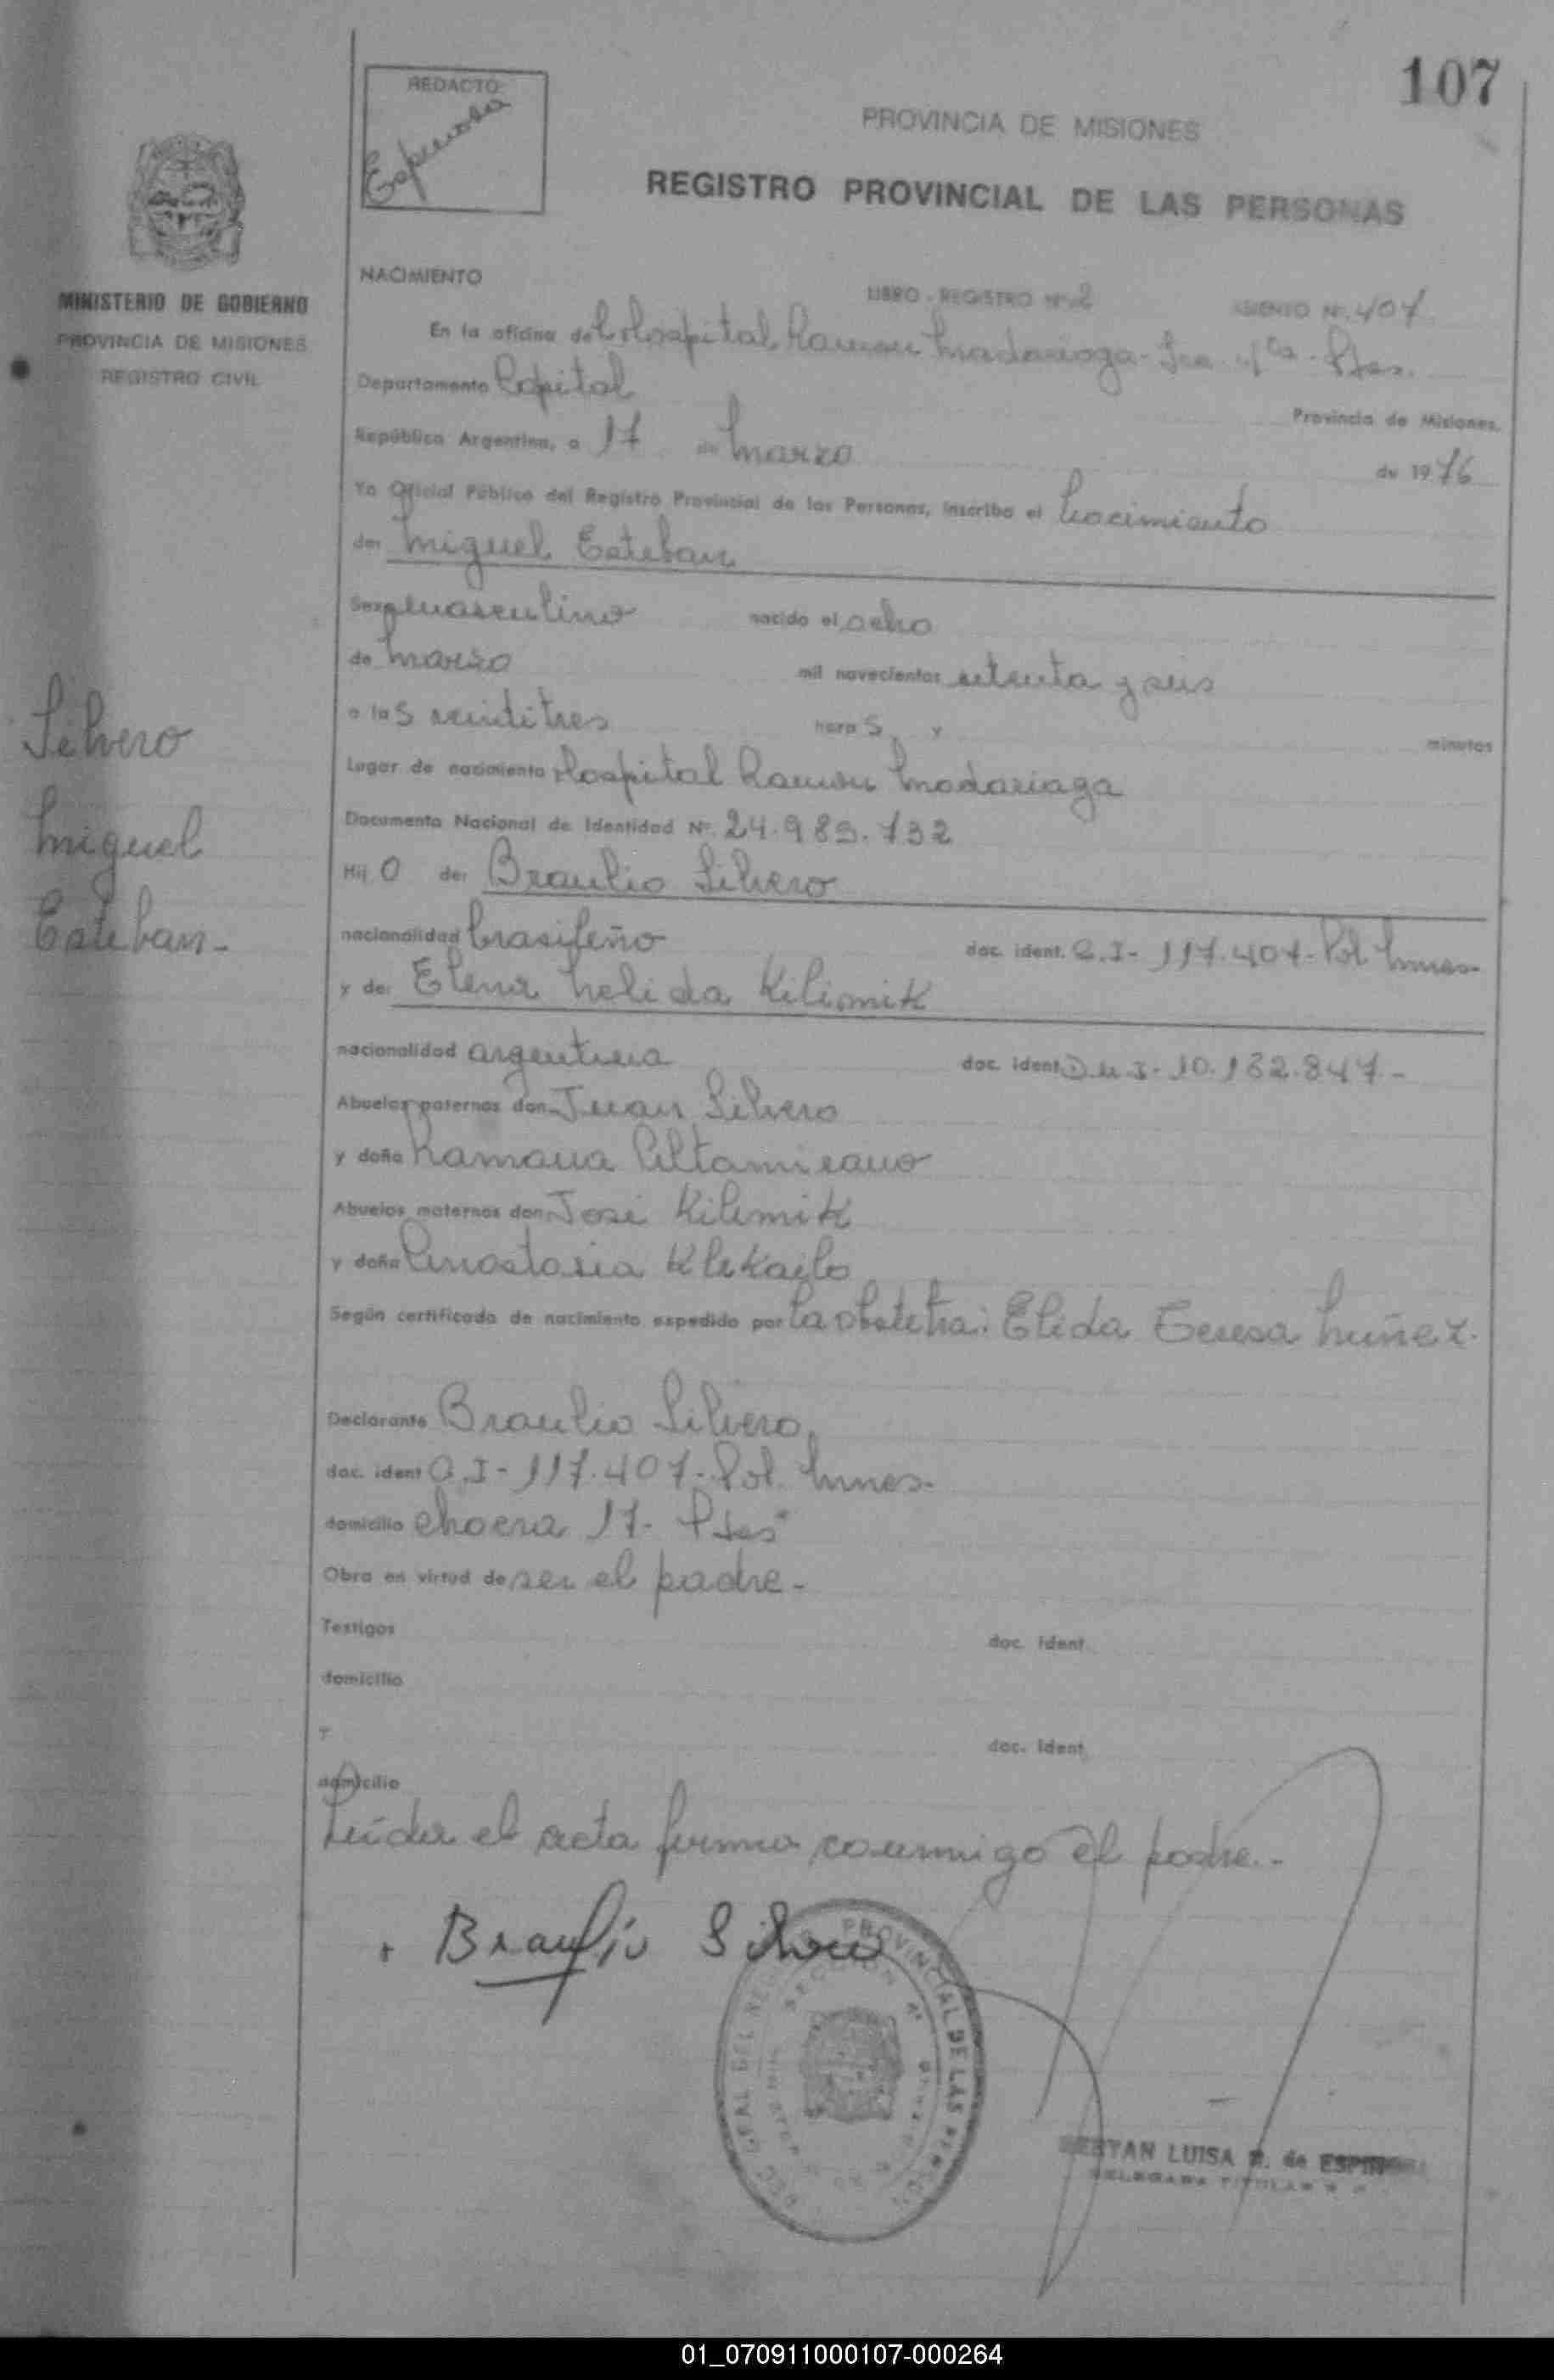 107
REDACTO:
Espinosa
PROVINCIA DE MISIONES
REGISTRO PROVINCIAL DE LAS PERSONAS
MINISTERIO DE GOBIERNO
PROVINCIA DE MISIONES
REGISTRO CIVIL
NACIMIENTO
LIBRO - REGISTRO Nº 2 ASIENTO Nº 407
En la oficina del Hospital Ramon Madariaga - Sec. 4ta - Pdas.
Departamento Capital
Provincia de Misiones,
República Argentina, a 17 de Marzo de 1976
Yo Oficial Público del Registro Provincial de las Personas, inscribo el Nacimiento
de: Miguel Esteban
Sexo masculino nacido el ocho
de Marzo mil novecientos setenta y seis
a las veintitres horas y minutos
Silvero
Miguel
Esteban-
Lugar de nacimiento Hospital Ramon Madariaga
Documento Nacional de Identidad Nº 24.989.732
Hijo de: Braulio Silvero
nacionalidad brasileño doc. ident. C.I- 117.407- Pol. Mnes-
y de: Elena Nelida Kilimik
nacionalidad argentina doc. ident. D.N.I- 10.162.847-
Abuelos paternos don Juan Silvero
y doña Ramona Altamirano
Abuelos maternos don José Kilimik
y doña Anastasia Klekailo
Según certificado de nacimiento expedido por la obstetra: Elida Teresa Nuñez.
Declarante Braulio Silvero,
doc. ident C.I- 117.407- Pol. Mnes-
domicilio chacra 17- Pdas
Obra en virtud de ser el padre-
Testigos doc. ident.
domicilio
Y doc. ident.
domicilio
Leída el acta firma conmigo el padre.-
Braulio Silvero
PROVINCIAL DE LAS
SECCION 4ª
BERTAN LUISA de ESPINOSA
DELEGADA TITULAR
01_070911000107-000264